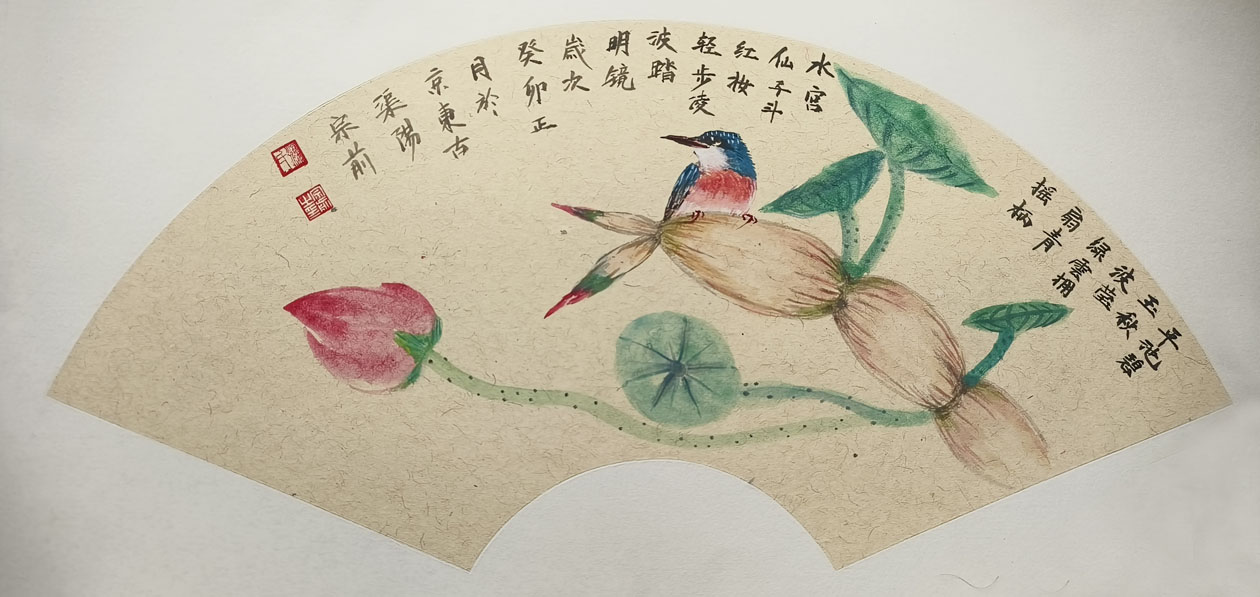 平池碧
玉秋
波莹
绿雲拥
扇青
摇柄
水宫
仙子斗
红妆
轻步凌
波踏
明镜
歲次
癸卯正
月於
京東古
渠陽
宗前